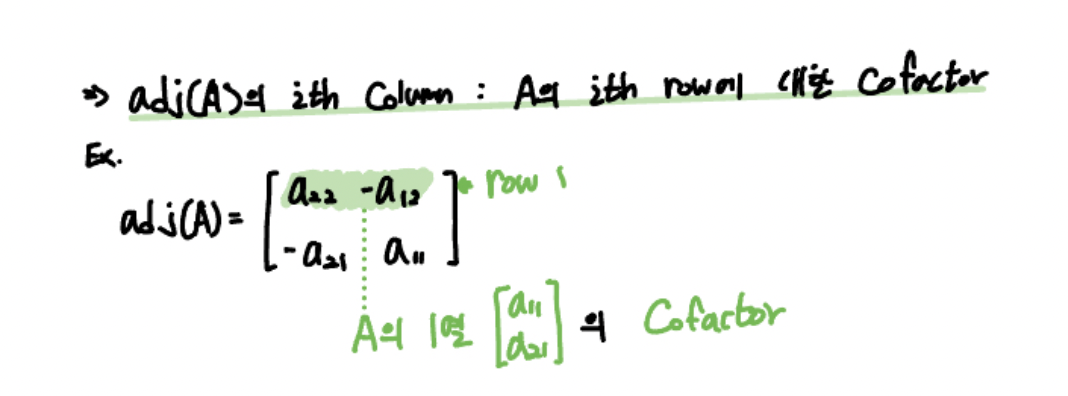 ⇒ adj(A)의 ith Column : A의 ith row에 대한 Cofactor
Ex.
adj(A) = [a₂₂ -a₁₂ ← row 1
-a₂₁ a₁₁]
A의 1열 [a₁₁ a₂₁] 의 Cofactor